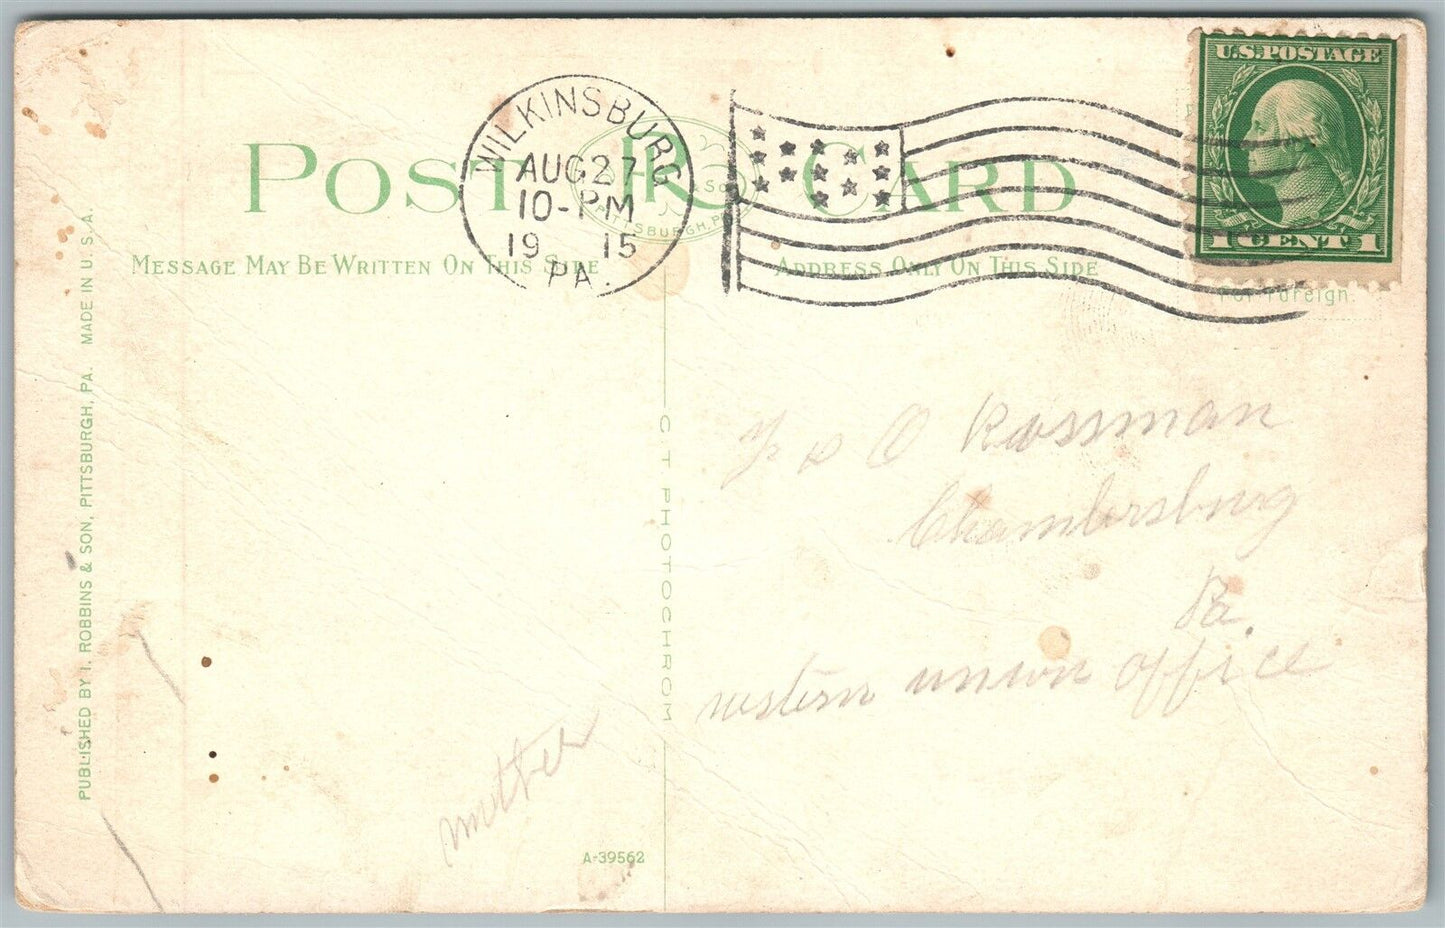 U.S. POSTAGE
1 CENT 1
WILKINSBURG
AUG 27
10-PM
19 15
PA.
POST CARD
R
& SON
PITTSBURGH, PA.
MESSAGE MAY BE WRITTEN ON THIS SIDE
ADDRESS ONLY ON THIS SIDE
For Foreign.
PUBLISHED BY I. ROBBINS & SON, PITTSBURGH, PA. MADE IN U.S.A.
C T PHOTOCHROM
O Rossman
Chambersburg
Pa.
western union office
mother
A-39562